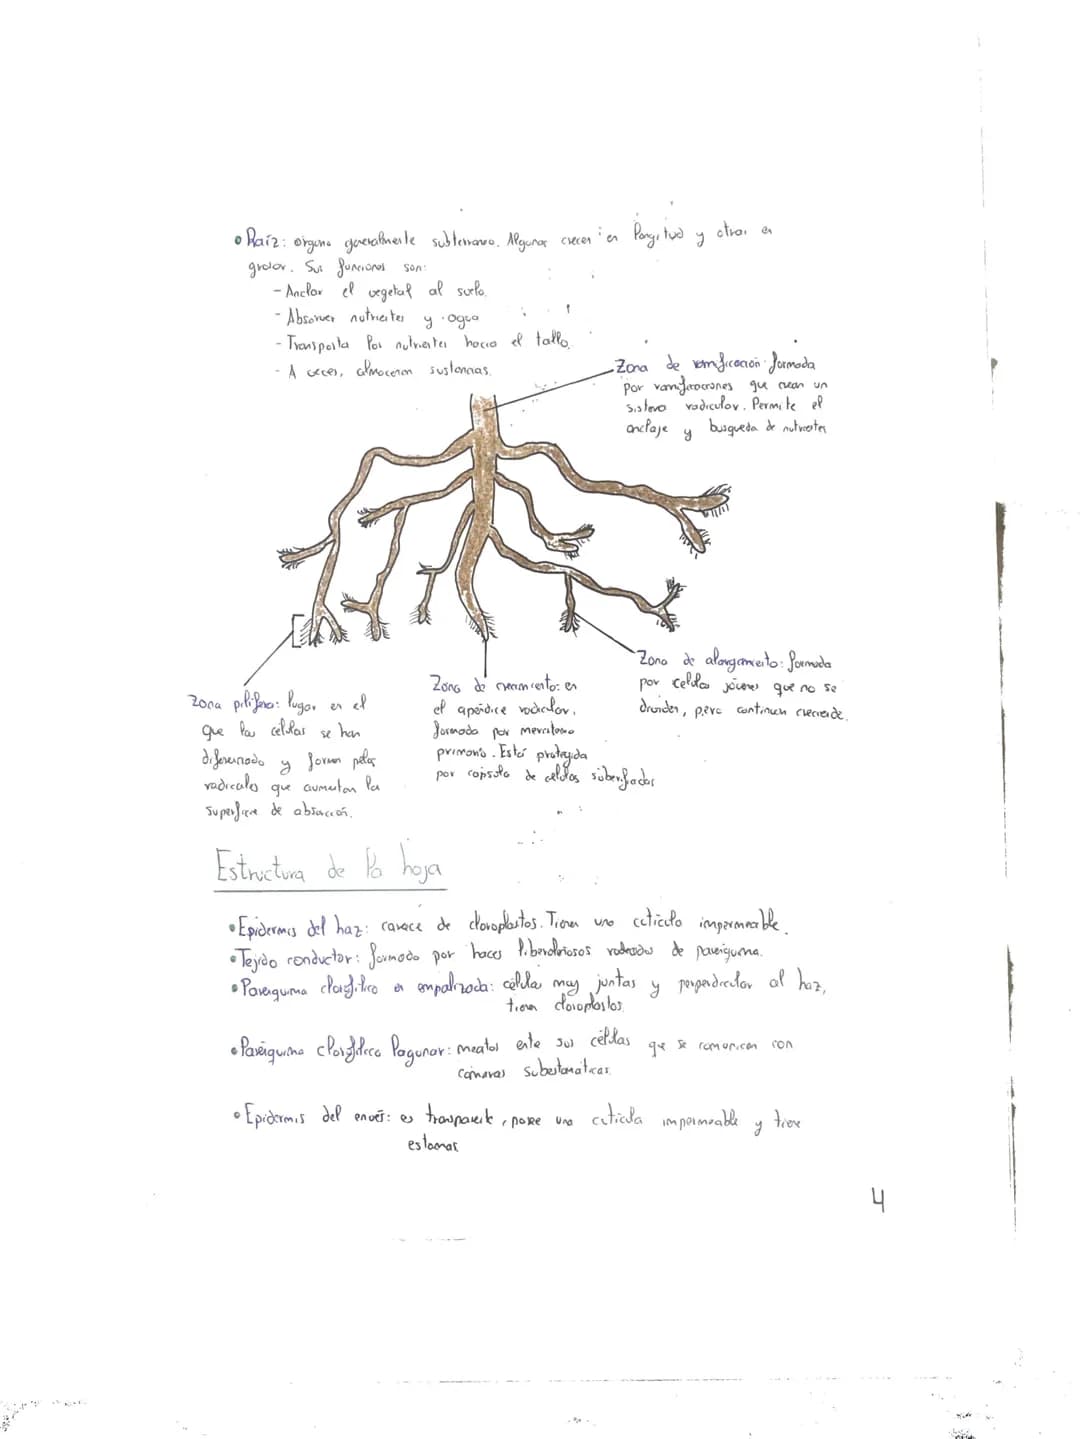 • Raíz: órgano generalmente subterraneo. Algunas crecen en longitud y otras en
grosor. Sus funciones son:
- Anclar el vegetal al suelo.
- Absorver nutrientes y agua
- Transporta los nutrientes hacia el tallo.
- A veces, almacenan sustancias.
Zona de ramificación: formada
por ramificaciones que crean un
sistema radicular. Permite el
anclaje y busqueda de nutrientes
Zona pilifera: lugar en el
que las células se han
diferenciado y forman pelos
radicales que aumentan la
superficie de absorción.
Zona de crecimiento: en
el apéndice radicular,
formado por meristemo
primario. Está protegida
por capsula de células suberificadas
Zona de alargamiento: formada
por celulas jóvenes que no se
dividen, pero continuan creciendo.
Estructura de la hoja
• Epidermis del haz: carece de cloroplastos. Tienen una cutícula impermeable.
• Tejido conductor: formado por haces liberoleñosos rodeados de parénquima.
• Parénquima clorofílico en empalizada: células muy juntas y perpendicular al haz,
tienen cloroplastos.
• Parénquima clorofílico lagunar: meatos ente sus células que se comunican con
cámaras subestomáticas.
• Epidermis del envés: es transparente, posee una cutícula impermeable y tiene
estomas
4